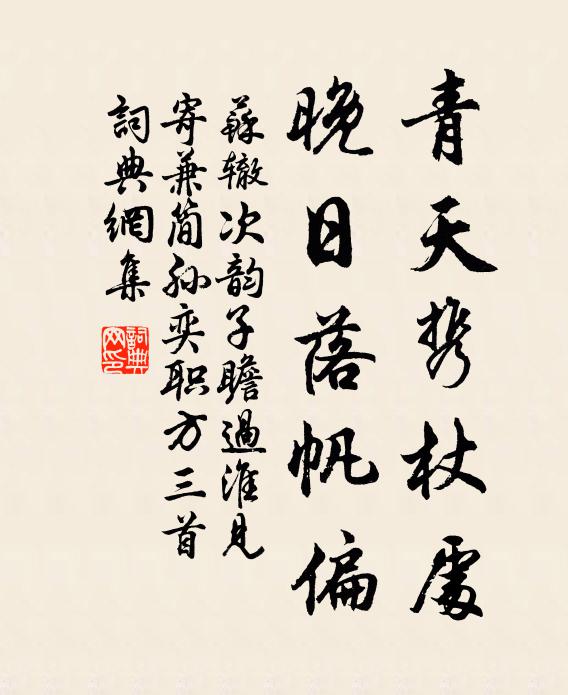 青天携杖處
晚日落帆偏
蘇辙次韵子瞻過淮見
寄兼简孙奕职方三首
詞典網集
詞典網印